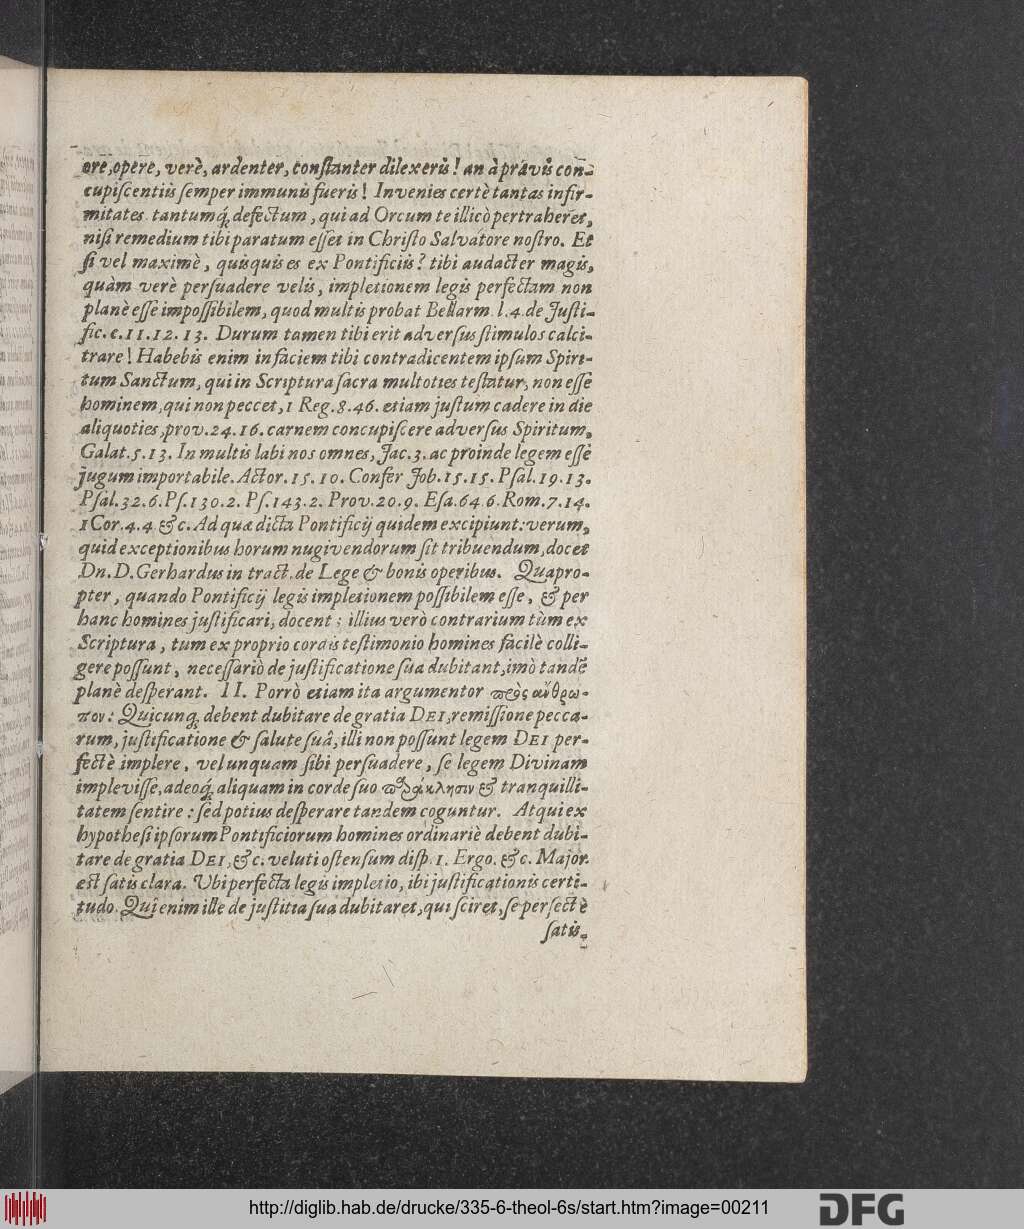 ore, opere, verè, ardenter, constanter dilexeris! an à pravis con-
cupiscentiis semper immunis fueris! Invenies certè tantas infir-
mitates tantumq́ defectum, qui ad Orcum te illicò pertraheret,
nisi remedium tibi paratum esset in Christo Salvatore nostro. Et
si vel maximè, quisquis es ex Pontificiis? tibi audacter magis,
quàm verè persuadere velis, impletionem legis perfectam non
planè esse impossibilem, quod multis probat Bellarm. l.4. de Justi-
fic. c. 11. 12. 13. Durum tamen tibi erit adversus stimulos calci-
trare! Habebis enim in faciem tibi contradicentem ipsum Spiri-
tum Sanctum, qui in Scriptura sacra multoties testatur, non esse
hominem, qui non peccet, 1 Reg. 8. 46. etiam justum cadere in die
aliquoties, prov. 24. 16. carnem concupiscere adversus Spiritum,
Galat. 5. 13. In multis labi nos omnes, Jac. 3. ac proinde legem esse
jugum importabile. Actor. 15. 10. Confer Job. 15. 15. Psal. 19. 13.
Psal. 32. 6. Ps. 130. 2. Ps. 143. 2. Prov. 20. 9. Esa. 64 6. Rom. 7. 14.
1 Cor. 4. 4 &c. Ad quæ dicta Pontificij quidem excipiunt: verum,
quid exceptionibus horum nugivendorum sit tribuendum, docet
Dn. D. Gerhardus in tract. de Lege & bonis operibus. Quapro-
pter, quando Pontificij legis impletionem possibilem esse, & per
hanc homines justificari, docent; illius verò contrarium tùm ex
Scriptura, tum ex proprio cordis testimonio homines facilè colli-
gere possunt, necessariò de justificatione sua dubitant, imò tandē
planè desperant. II. Porrò etiam ita argumentor πρὸς ἄνθρω-
πον: Quicunq́ debent dubitare de gratia DEI, remissione pecca-
rum, justificatione & salute suâ, illi non possunt legem DEI per-
fectè implere, vel unquam sibi persuadere, se legem Divinam
implevisse, adeoq́ aliquam in corde suo παράκλησιν & tranquilli-
tatem sentire: sed potius desperare tandem coguntur. Atqui ex
hypothesi ipsorum Pontificiorum homines ordinariè debent dubi-
tare de gratia DEI, &c. veluti ostensum disp. 1. Ergo. &c. Major.
est satis clara. Ubi perfecta legis impletio, ibi justificationis certi-
tudo. Qui enim ille de justitia sua dubitaret, qui sciret, se perfectè
satis-
http://diglib.hab.de/drucke/335-6-theol-6s/start.htm?image=00211
DFG